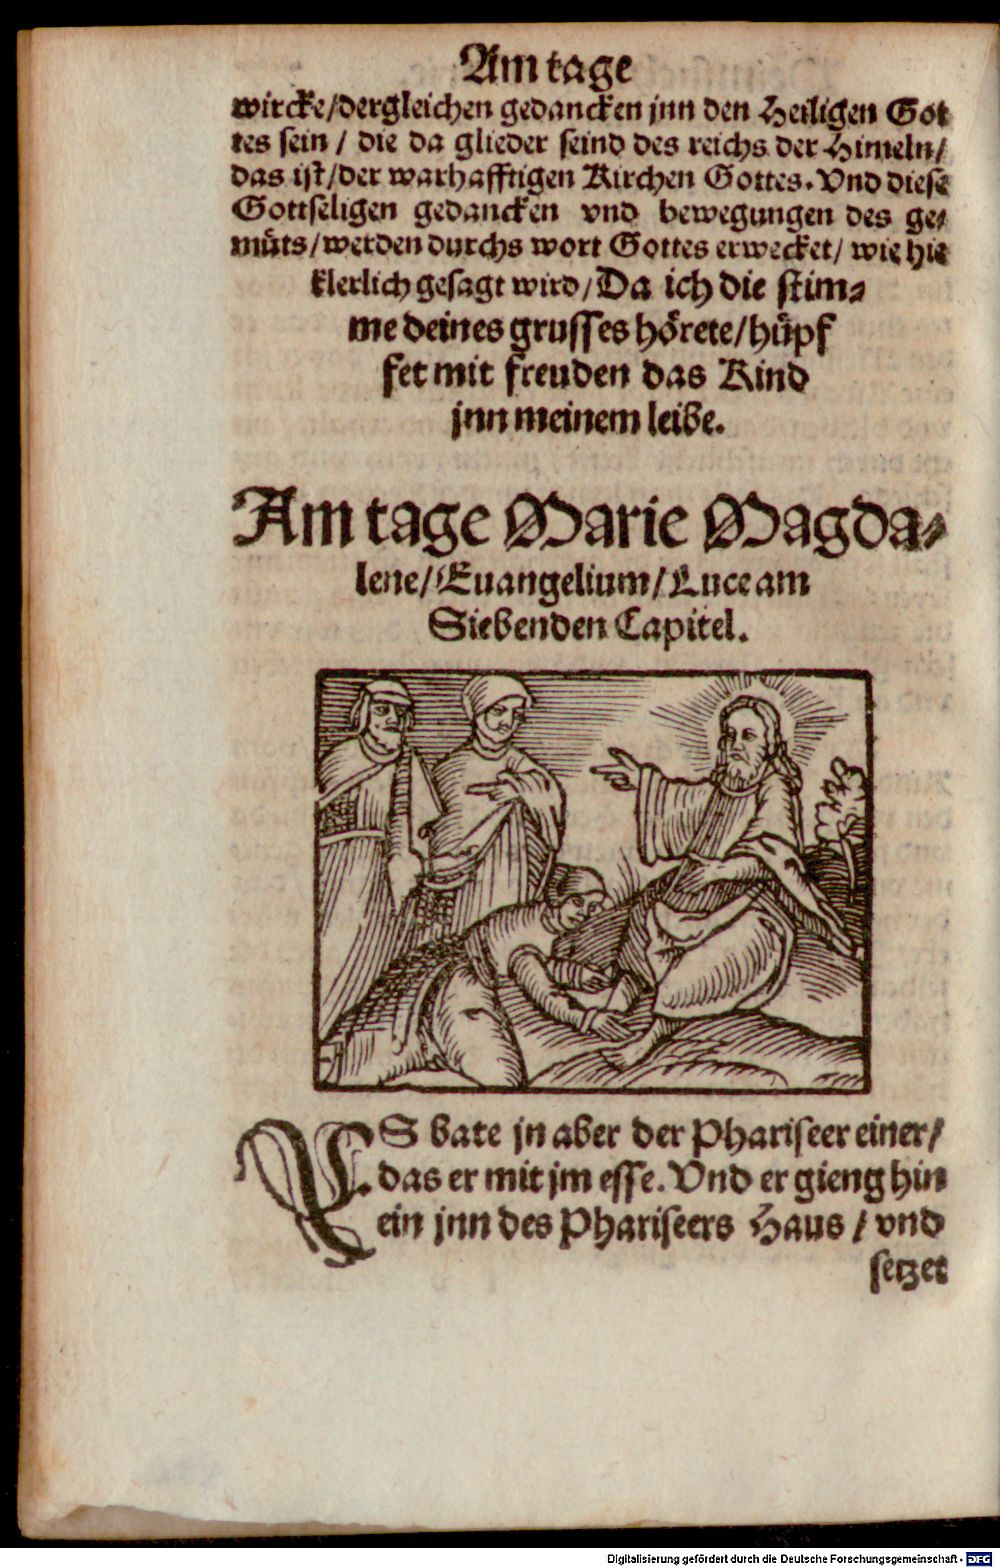 Am tage
wircke/dergleichen gedancken jnn den Heiligen Got
tes sein / die da glieder seind des reichs der Himeln/
das ist/der warhafftigen Kirchen Gottes. Vnd diese
Gottseligen gedancken vnd bewegungen des ge⸗
müts/werden durchs wort Gottes erwecket/ wie hie
klerlich gesagt wird/Da ich die stim⸗
me deines grusses hörete/hüpf
fet mit freuden das Kind
jnn meinem leibe.
Am tage Marie Magda⸗
lene/Euangelium/Luce am
Siebenden Capitel.
ES bate jn aber der Phariseer einer/
das er mit jm esse. Vnd er gieng hin
ein jnn des Phariseers Haus / vnd
setzet
Digitalisierung gefördert durch die Deutsche Forschungsgemeinschaft - DFG